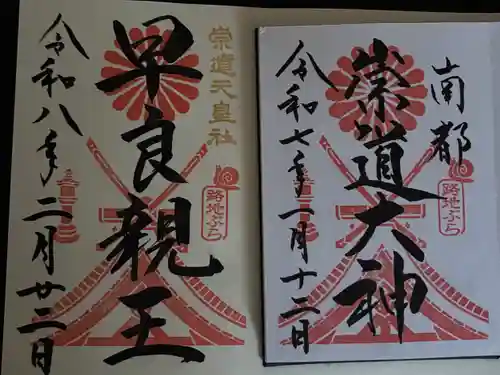 南都
崇道大神
路地ぶら
令和七年一月十二日
崇道天皇社
早良親王
路地ぶら
令和八年二月廿二日